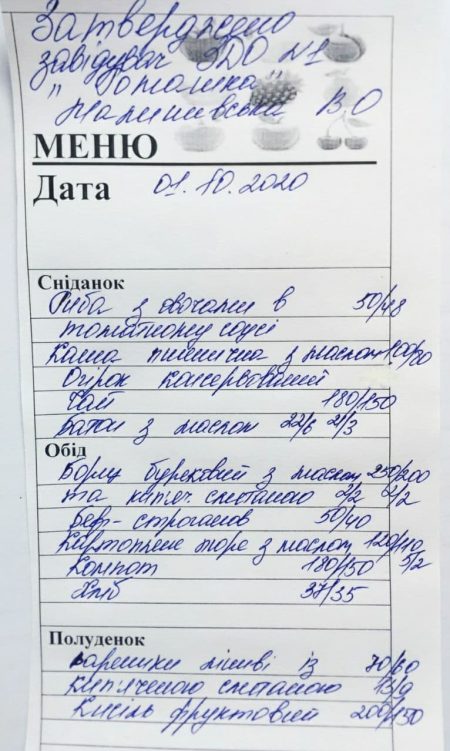 Затверджено
завідувач ЗДО №1
"Ромашка"
В О
МЕНЮ
Дата 01.10.2020
Сніданок
Риба з овочами в 50/48
томатному соусі
Каша пшенична з маслом 100/80
Огірок консервований
Чай 180/150
Батон з маслом 22/6 21/3
Обід
Борщ буряковий з маслом 250/200
та кип'яч. сметаною 2/2 2/2
беф-строганов 50/40
Картопляне пюре з маслом 120/110
Компот 180/150 5/2
Хліб 37/35
Полуденок
вареники ліниві із 70/60
кип'яченою сметаною 13/9
Кисіль фруктовий 200/150